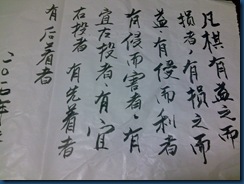 凡棋有益之而
损者有损之而
益有侵而利者
有侵而害者有
宜左投者有宜
右投者有先着者
有后着者
二〇一六年